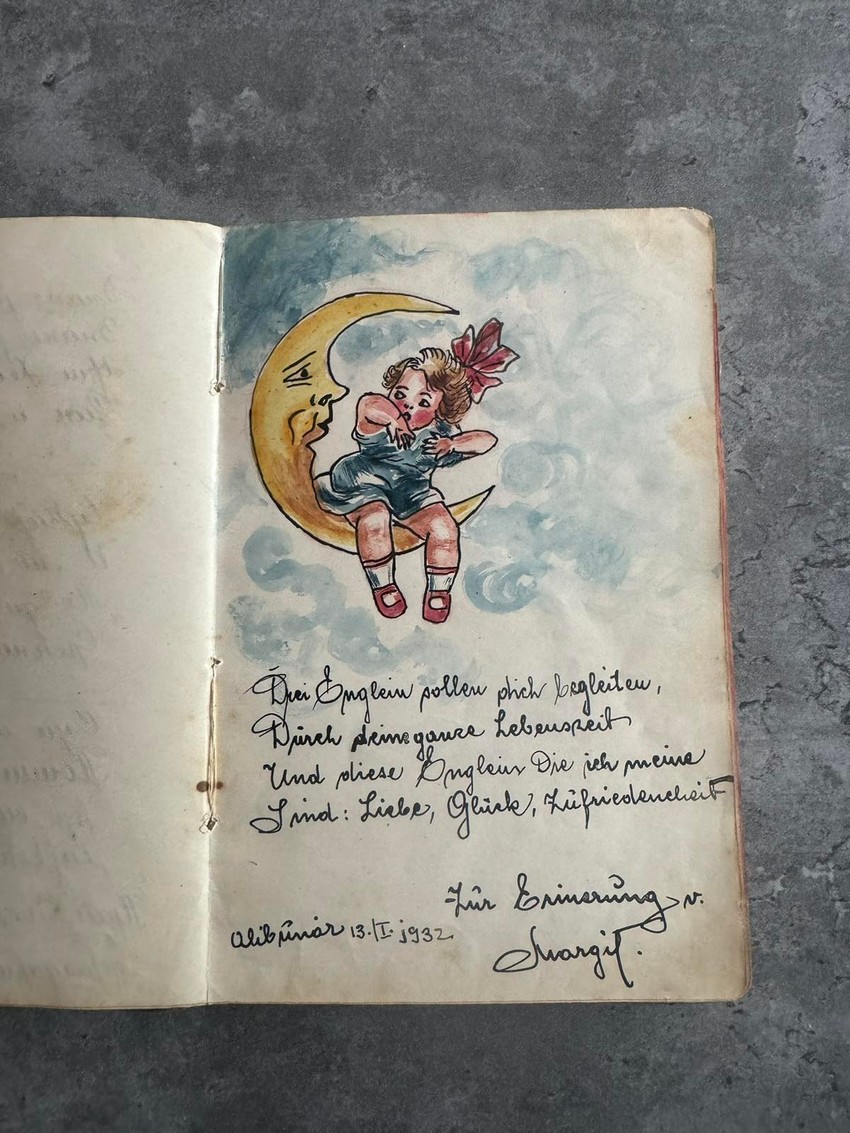 Drei Englein sollen dich begleiten,
Durch deine ganze Lebenszeit
Und diese Englein Die ich meine
Sind: Liebe, Glück, Zufriedenheit
Zur Erinerung v.
Alibunar 13./I. 1932.
Margit.